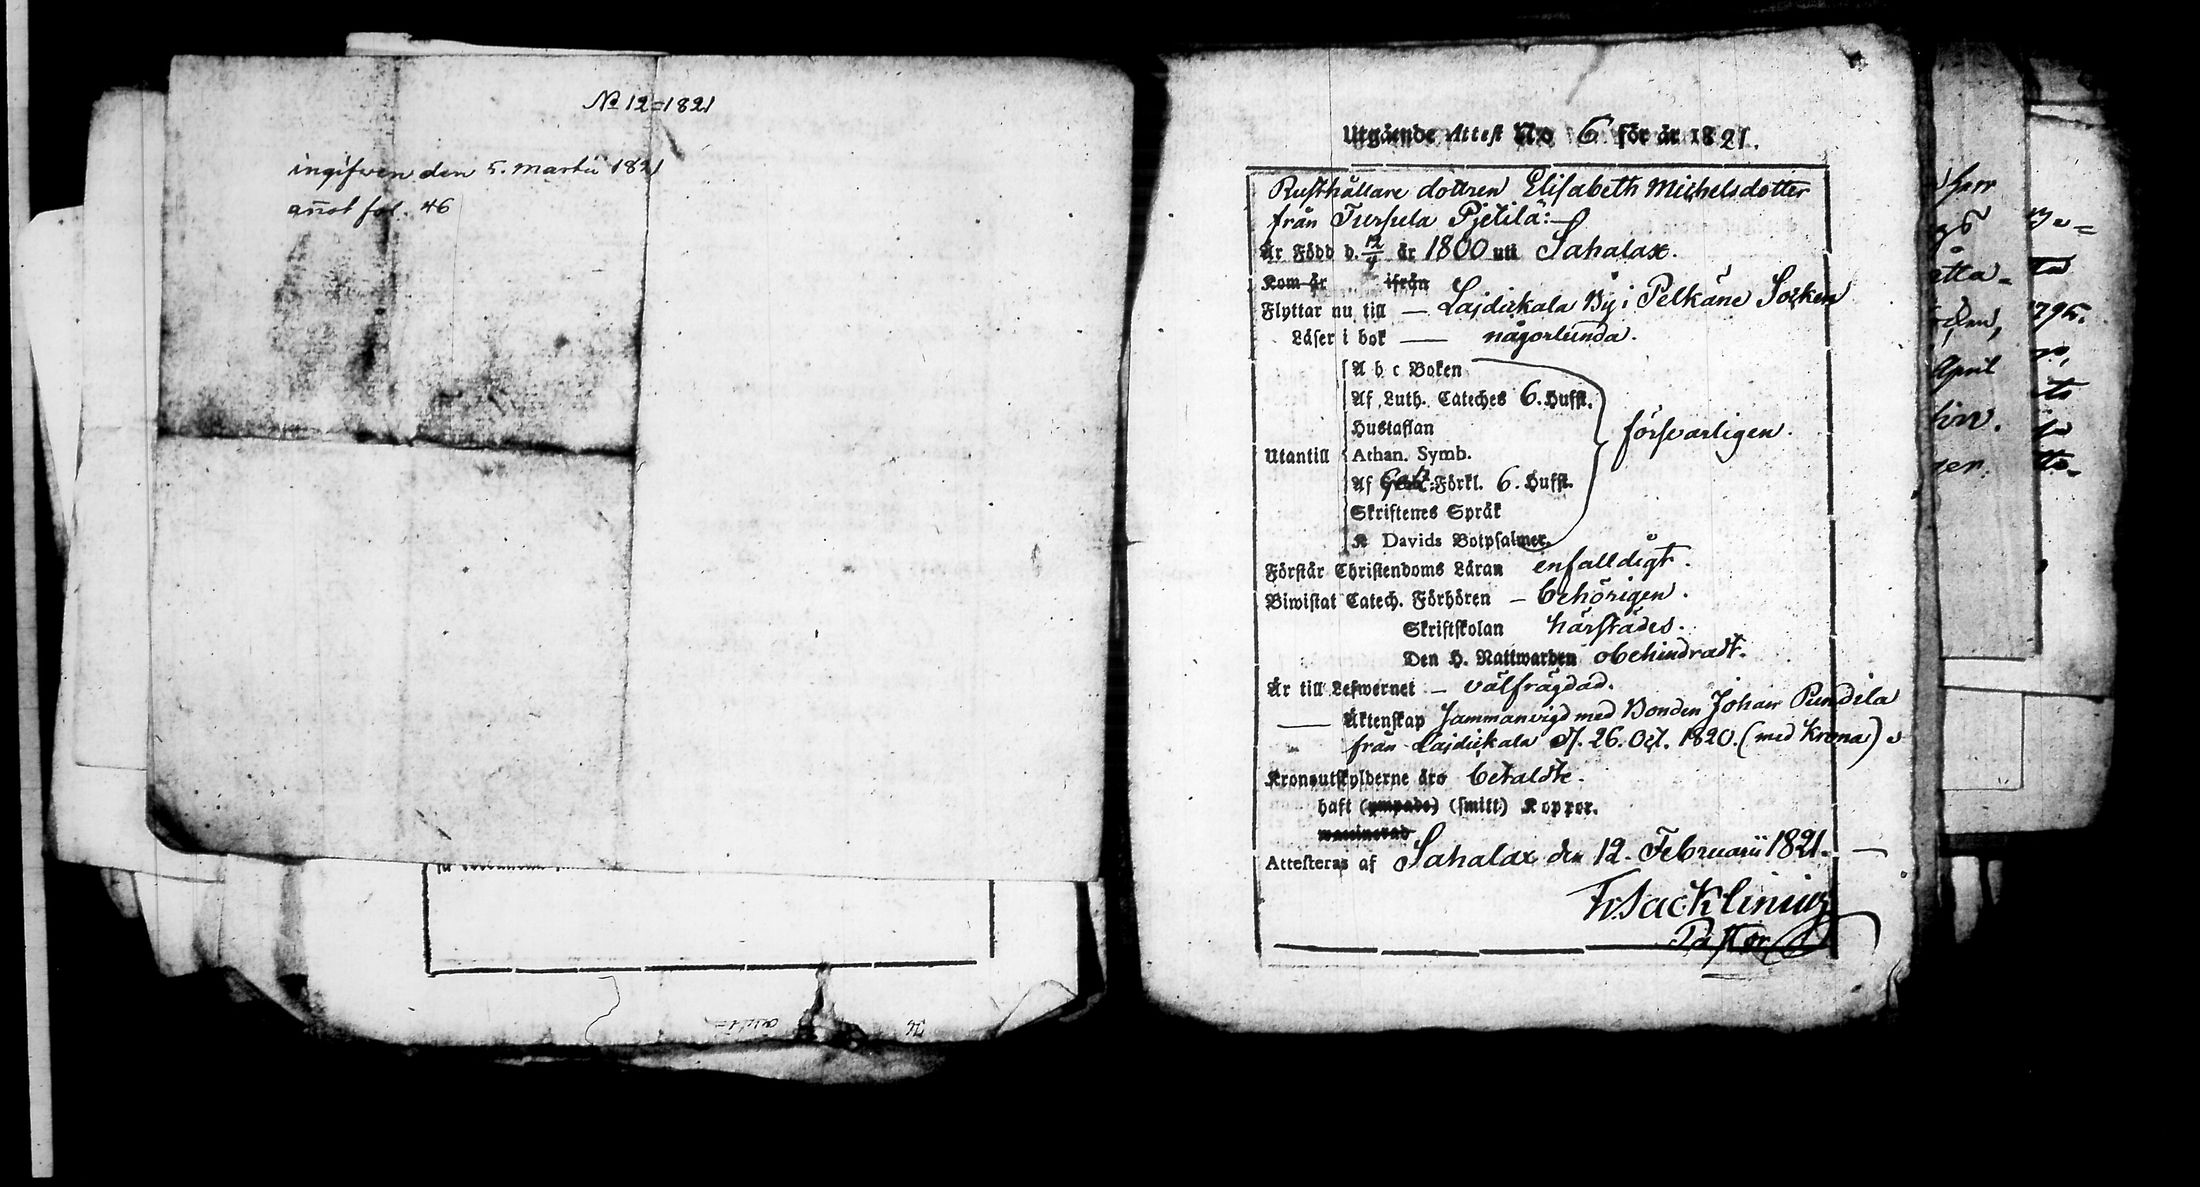 No 12=1821
ingifwen den 5. Martii 1821
añot fol. 46
Utgående Attest No 6 för år 1821.
Rusthållare dottren Elisabeth Michelsdotter
från Tursula Pjetilä:
Är Född d. 12/4 år 1800 uti Sahalax.
Kom år ifrån
Flyttar nu till — Lajdickala By i Pelkäne Socken
Läser i bok — någorlunda.
A b c Boken
Af Luth. Cateches 6. Hufst.
Hustaflan
försvarligen.
Utantill Athan. Symb.
Af Förkl. 6. Hufst.
Skriftenes Språk
K Davids Botpsalmer.
Förstår Christendoms Läran enfalldigt.
Biwistat Catech. Förhören — behörigen.
Skriftskolan härstädes.
Den H. Nattwarden obehindradt.
Är till Lefwernet — välfrägdad.
— Äktenskap Sammanvigd med Bonden Johan Pundila
från Lajdickala d. 26. Oct. 1820. (med Krona)
Kronoutskylderne äro betaldte.
haft (ympade) (smitt) Koppor.
waccinerad
Attesteras af Sahalax den 12. Februarii 1821. —
Pastor
herr
April